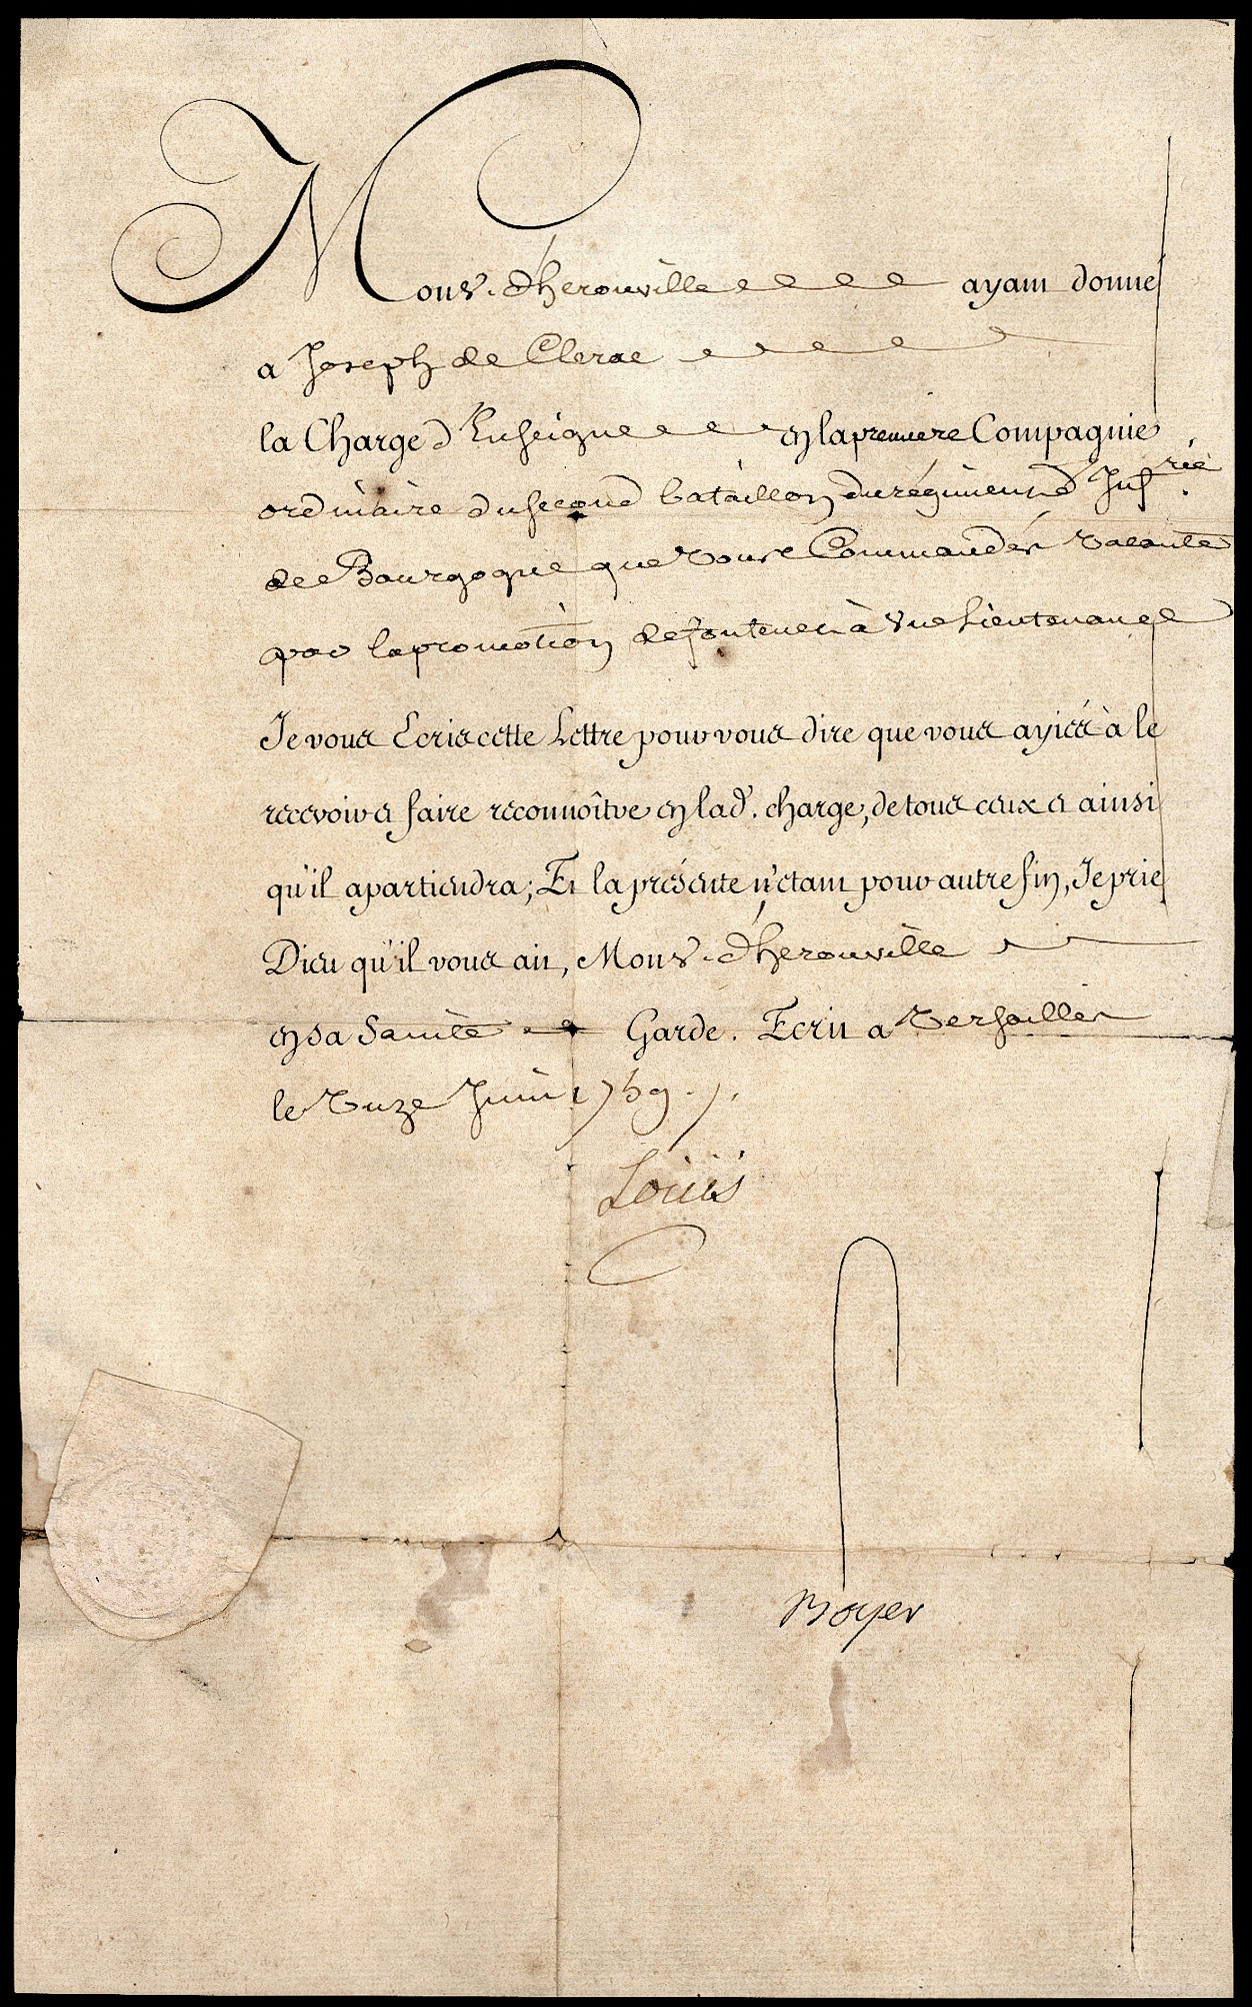 Mons. d'herouville ayant donné
a Joseph de Clerac
la Charge d'Enseigne en la premiere Compagnie
ordinaire du second bataillon du régiment d'Infrie
de Bourgogne que vous Commandés vacante
par la promotion de fontenet à une Lieutenance
Je vous Ecris cette Lettre pour vous dire que vous ayiés à le
recevoir et faire reconnoître en lad. charge, de tous ceux et ainsi
qu'il apartiendra; Et la présente n'etant pour autre fin, Je prie
Dieu qu'il vous ait, Mons. d'herouville
en sa Sainte Garde. Ecrit a Versailles
le Onze Juin 1759.
Louis
Boyer